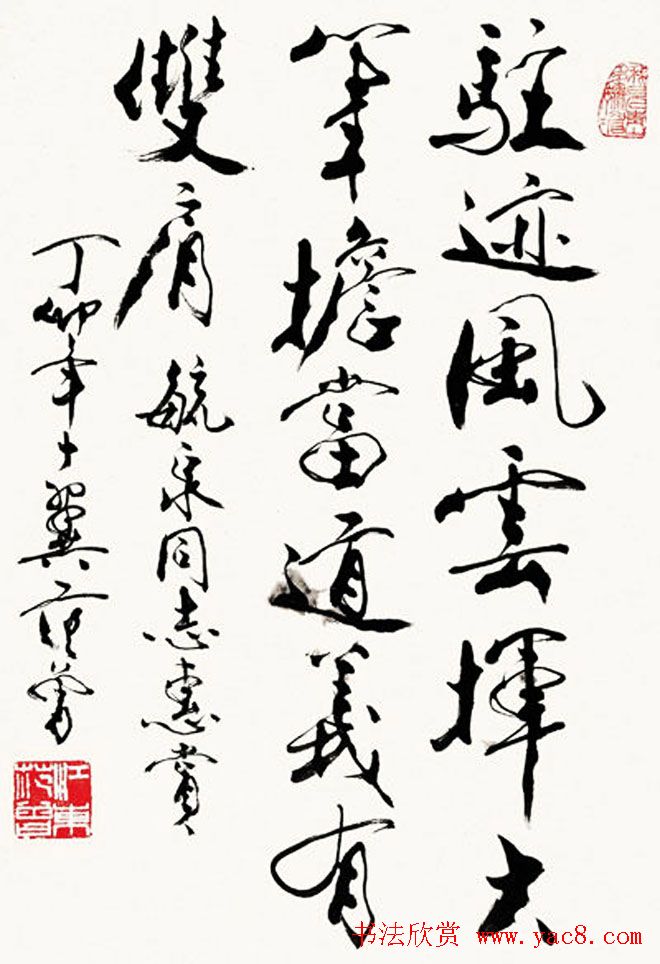 駐迹風雲揮大
筆擔當道義有
雙肩 毓泉同志惠賞
丁卯年十翼范曾
江東
范曾
书法欣赏 www.yac8.com